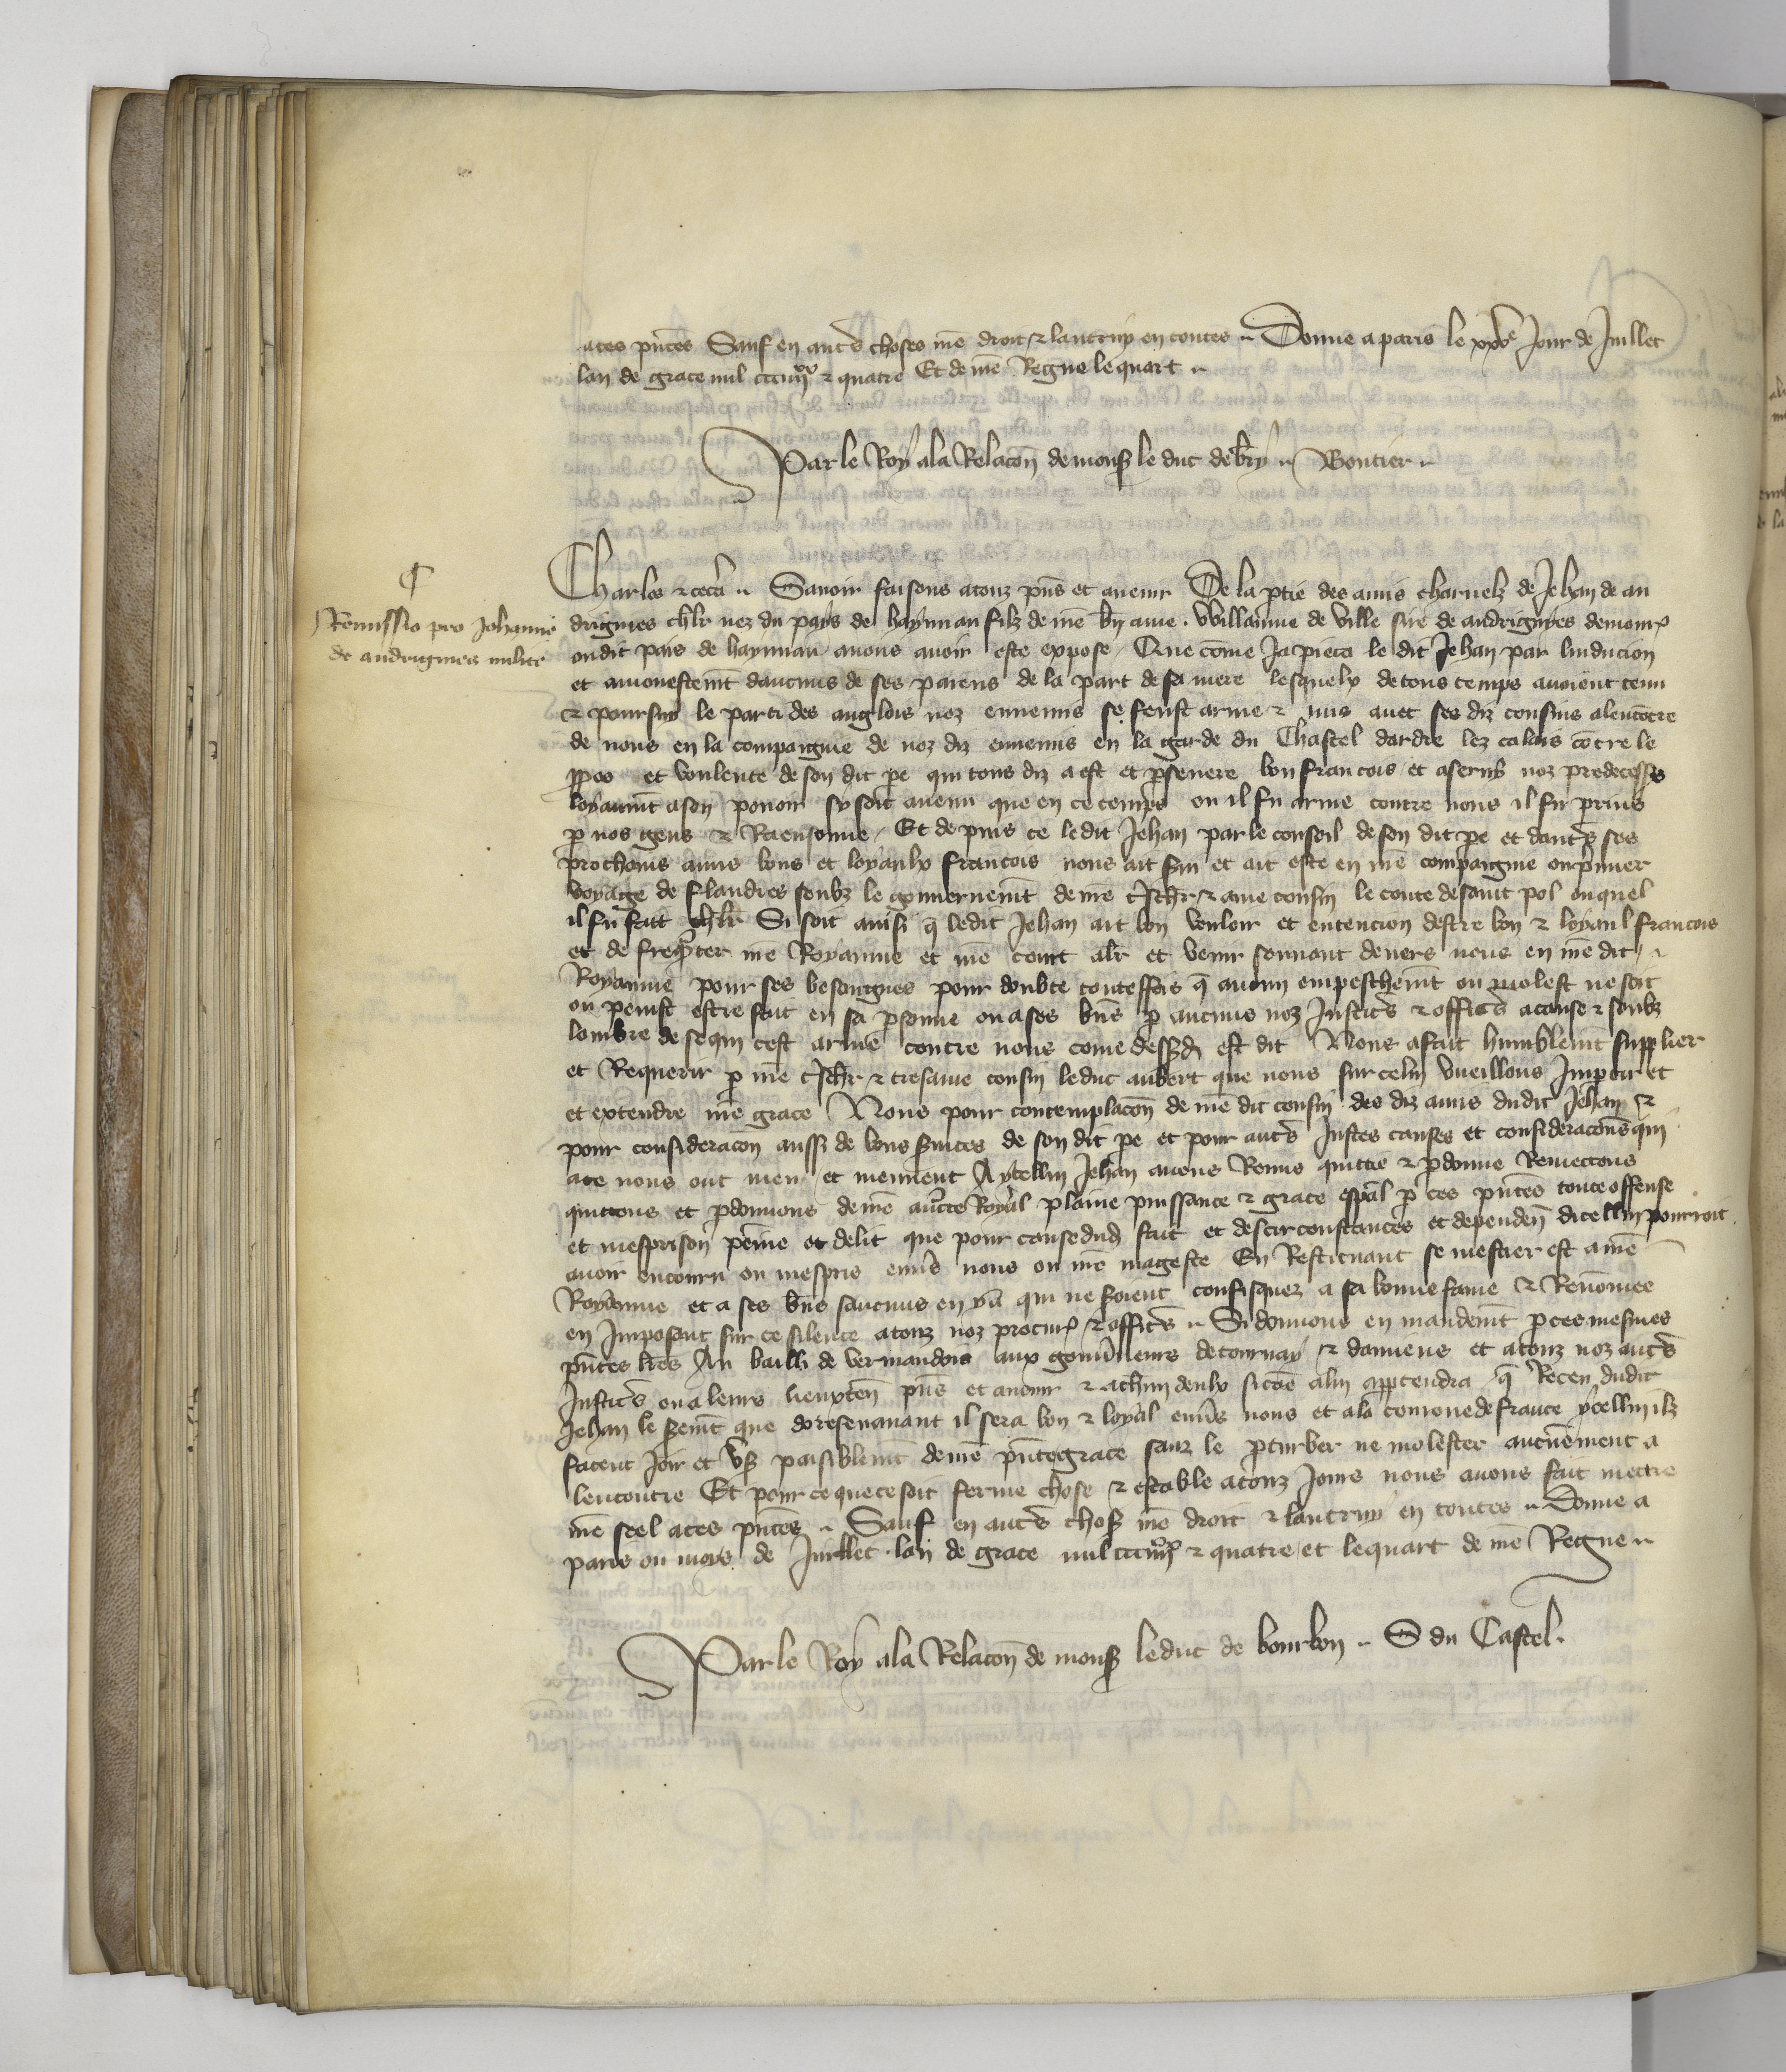 ates pn̄tes Sauf en aut̄s choses nr̄e droit ⁊ lautruy en toutes Donne a paris le xxve Jour de Juillet
lan de grace mil ccciiijxx ⁊ quatre Et de nr̄e Regne le quart
Par le Roy ala Relacōn de mons̄ le duc de b̄ry Bontier
Charles ⁊ cet̄a Sauoir faisons atouz pn̄s et auenir De la ptie des amis charnelz de Jehan de an
drignies chl̄r nez du pays de haynnau filz de nr̄e bn̄ ame Willaume de Ville sire de andrignyes demour̄
oudit pais de haynnau auons auoir este expose Que cōme Ja pieca le dit Jehan par linducion
et amonestem̄t daucuns de ses parens de la part de sa mere lesquelx de tous temps auoient tenu
⁊ poursuy le parti des anglois noz ennemis se feust arme ⁊ mis auec ses diz cousins alencōtre
de nous en la compaignie de noz diz ennemis en la garde du Chastel dardre lez calais cōtre le
ppos et voulente de son dit pe qui tous diz a est et p̄seuere bon francois et aseruy noz predecess̄s
loyaum̄t a son pouoir sy soit auenu que en ce temps ou il fu arme contre nous il fu prins
p nos gens ⁊ Raensonne Et depuis ce ledit Jehan par le conseil de son dit pe et daut̄s ses
prochains amis bons et loyaulx francois nous ait s̄ui et ait este en nr̄e compaignie ou p̄mier
voyage de flandres soubz le gouuernem̄t de nr̄e t̄scher ⁊ ame cousin le conte de saint pol ouquel
il fu fait chl̄r Si soit ainsi q̄ ledit Jehan ait bon vouloir et entencion destre bon ⁊ loyaul francois
et de freqn̄ter nr̄e Royaume et nr̄e court al̄r et venir souuant deuers nous en nr̄e dit
Royaume pour ses besoingnes pour doubte touteffois q̄ aucun empeschem̄t ou molest ne soit
ou peust estre fait en sa p̄sonne ou a ses bn̄s p aucuns noz Justic̄s ⁊ offic̄s acause ⁊ soubz
lombre de sequi cest arme contre nous cōme dess̄d est dit Nous afait humblem̄t supplier
et Requerir p nr̄e t̄scher ⁊ tresame cousin le duc aubert que nous sur celui vueillons Impartir et
et extendre nr̄e grace Nous pour contemplacōn de nr̄e dit cousin des diz amis dudit Jehan ⁊
pour consideracōn aussi de bons s̄uices de son dit pe et pour aut̄s Justes causes et consideracōns qui
ace nous ont meu et meuuent Aycellui Jehan auons Remis quittie ⁊ p̄donne Remectons
quittons et p̄donnons de nr̄e auct̄te Royal plaine puissance ⁊ grace esp̄al p ces pn̄tes toute offense
et mesprison peine et delit que pour cause dud̄ fait et des circonstances et dependen̄ dicellui pourroit
auoir encouru ou mespris enu̅s nous ou nr̄e mageste En Restituant se mestier est a nr̄e
Royaume et a ses bn̄s saucuns en y a qui ne soient confisquez a sa bonne fame ⁊ Renōmee
en Imposant sur ce silence atouz noz procur̄ ⁊ offic̄s Si donnons en mandem̄t p ces mesmes
pn̄tes l̄res Au bailli de Vermandois aux gouu̅neurs de tournay ⁊ damiens et atouz noz aut̄s
Justic̄s ou a leurs lieuxten̄ pn̄s et auenir ⁊ achūn deulx sicōe alui appartendra q̄ Receu dudit
Jehan le serm̄t que doresenauant il sera bon ⁊ loyal enu̅s nous et ala couronne de france ycellui ilz
facent Joir et vs̄ paisiblem̄t de nr̄e pn̄te grace sanz le p̄turber ne molester aucunement a
lencontre Et pour ce que ce soit ferme chose ⁊ estable atouz Jours nous auons fait mettre
nr̄e seel ates pn̄tes Sauf en aut̄s chos̄ nr̄e droit ⁊ lautruy en toutes Donne a
paris ou moys de Juillet lan de grace mil ccciiijxx ⁊ quatre et le quart de nr̄e Regne
Par le Roy ala Relacōn de mons̄ le duc de bourbon S du Castel
Remissio pro Johanne
de andrignies milite